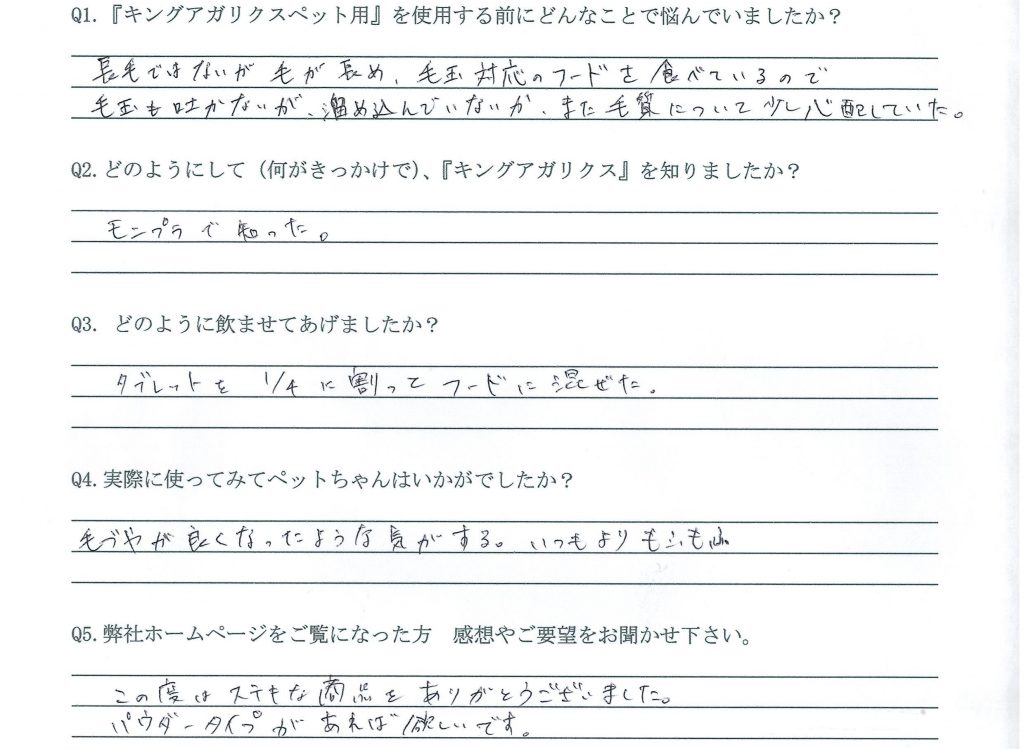 Q1.『キングアガリクスペット用』を使用する前にどんなことで悩んでいましたか？
長毛ではないが 毛が長め、毛玉対応のフードを食べているので
毛玉も吐かないが、溜め込んでいないか、また毛質について少し心配していた。
Q2.どのようにして（何がきっかけで）、『キングアガリクス』を知りましたか？
モンプラで知った。
Q3. どのように飲ませてあげましたか？
タブレットを 1/4 に割ってフードに混ぜた。
Q4.実際に使ってみてペットちゃんはいかがでしたか？
毛づやが良くなったような気がする。いつもよりもふもふ
Q5.弊社ホームページをご覧になった方　感想やご要望をお聞かせ下さい。
この度はステキな商品をありがとうございました。
パウダータイプがあれば欲しいです。